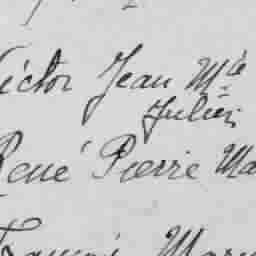 Victor Jean Mie
Julien
René Pierre Ma